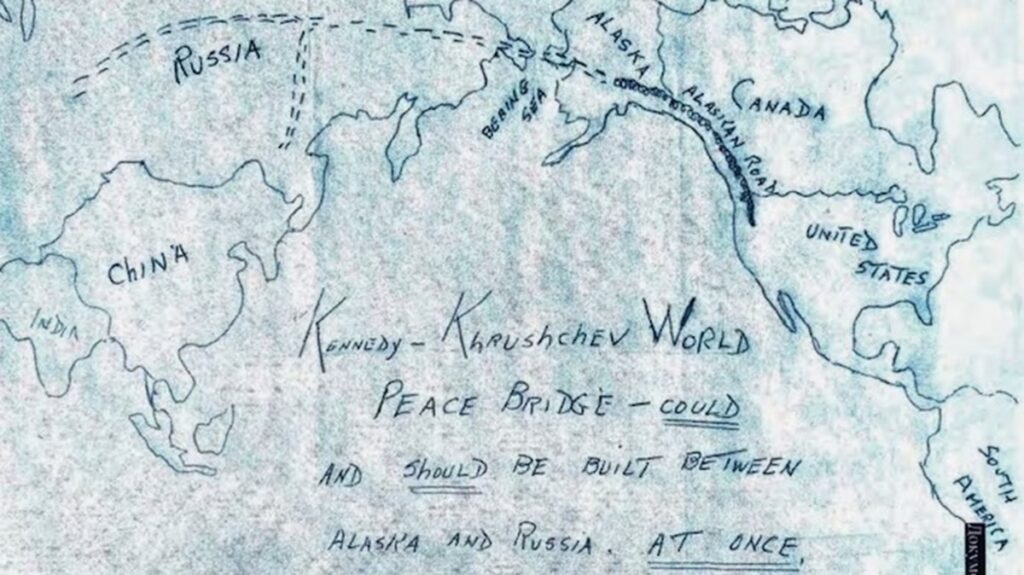 RUSSIA
ALASKA
CANADA
BERING
SEA
ALASKAN ROAD
CHINA
INDIA
UNITED
STATES
KENNEDY - KHRUSHCHEV WORLD
PEACE BRIDGE - COULD
AND SHOULD BE BUILT BETWEEN
ALASKA AND RUSSIA. AT ONCE.
SOUTH
AMERICA